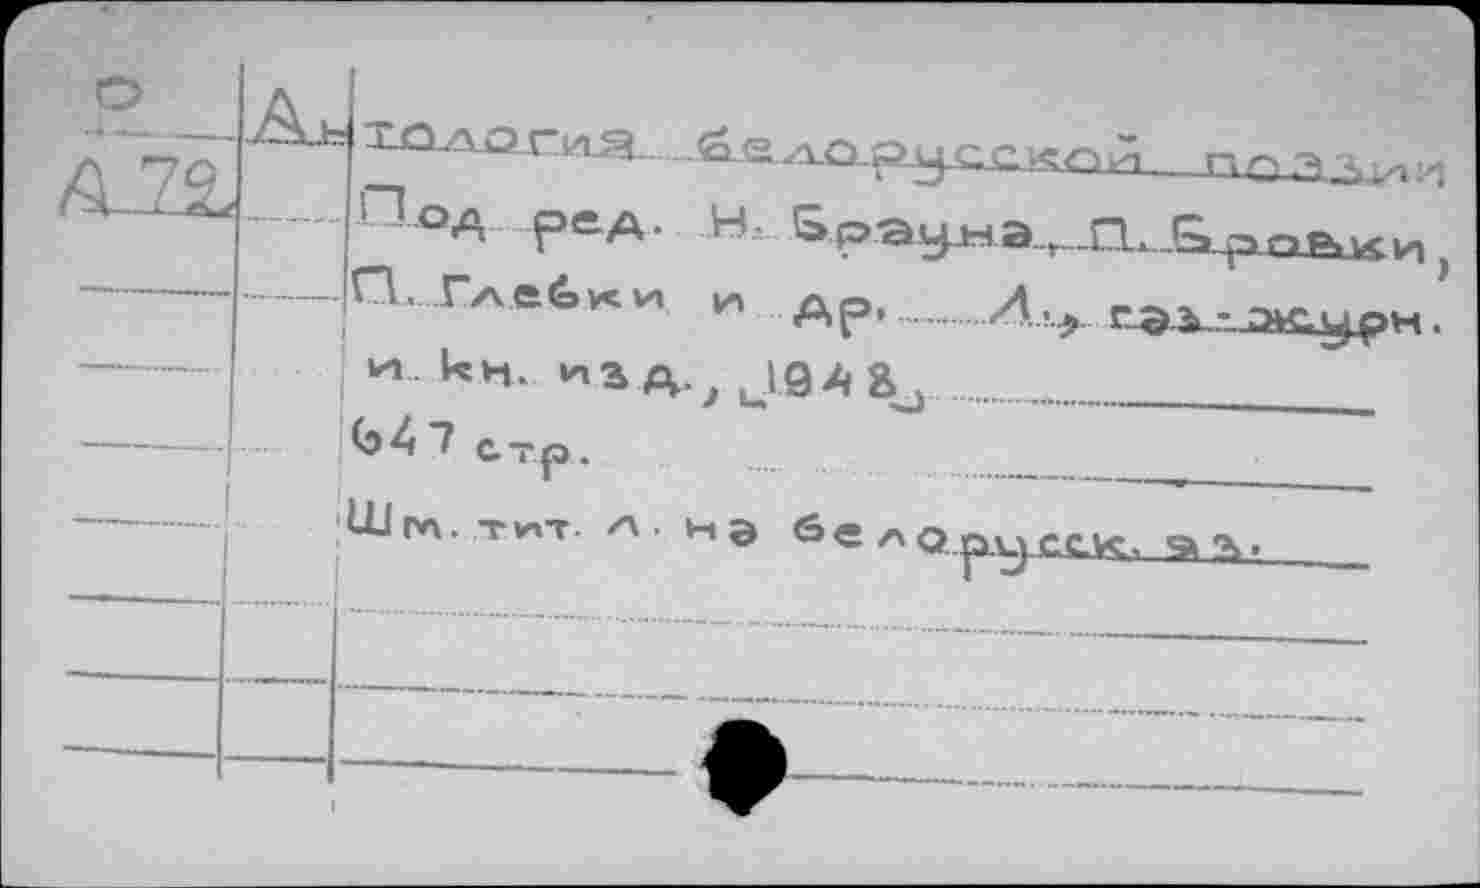 О
А 72
Антология белорусской поэзии
Под ред. Н. Брауна, П. Бровки,
П. Глебки и др. Л., газ.-журн.
и кн. изд., [1948]
647 стр.
Шм. тит. л. на белорусск. яз.